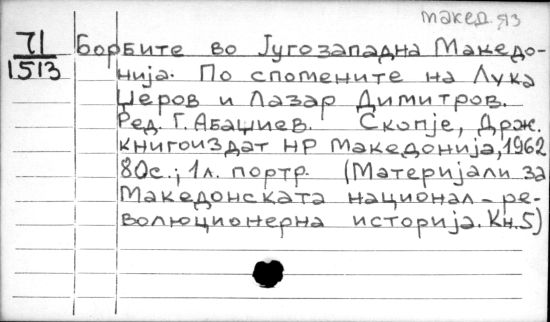 макед. яз
71
1513
Борбите во Југозападна Македо-
нија. По спомените на Лука
Џеров и Лазар Димитров.
Ред. Г. Абаџиев. Скопје, Држ.
книгоиздат НР Македонија, 1962
80с.; 1л. портр. (Материјали за
Македонската национал-ре-
волюционерна историја. Кн. 5)